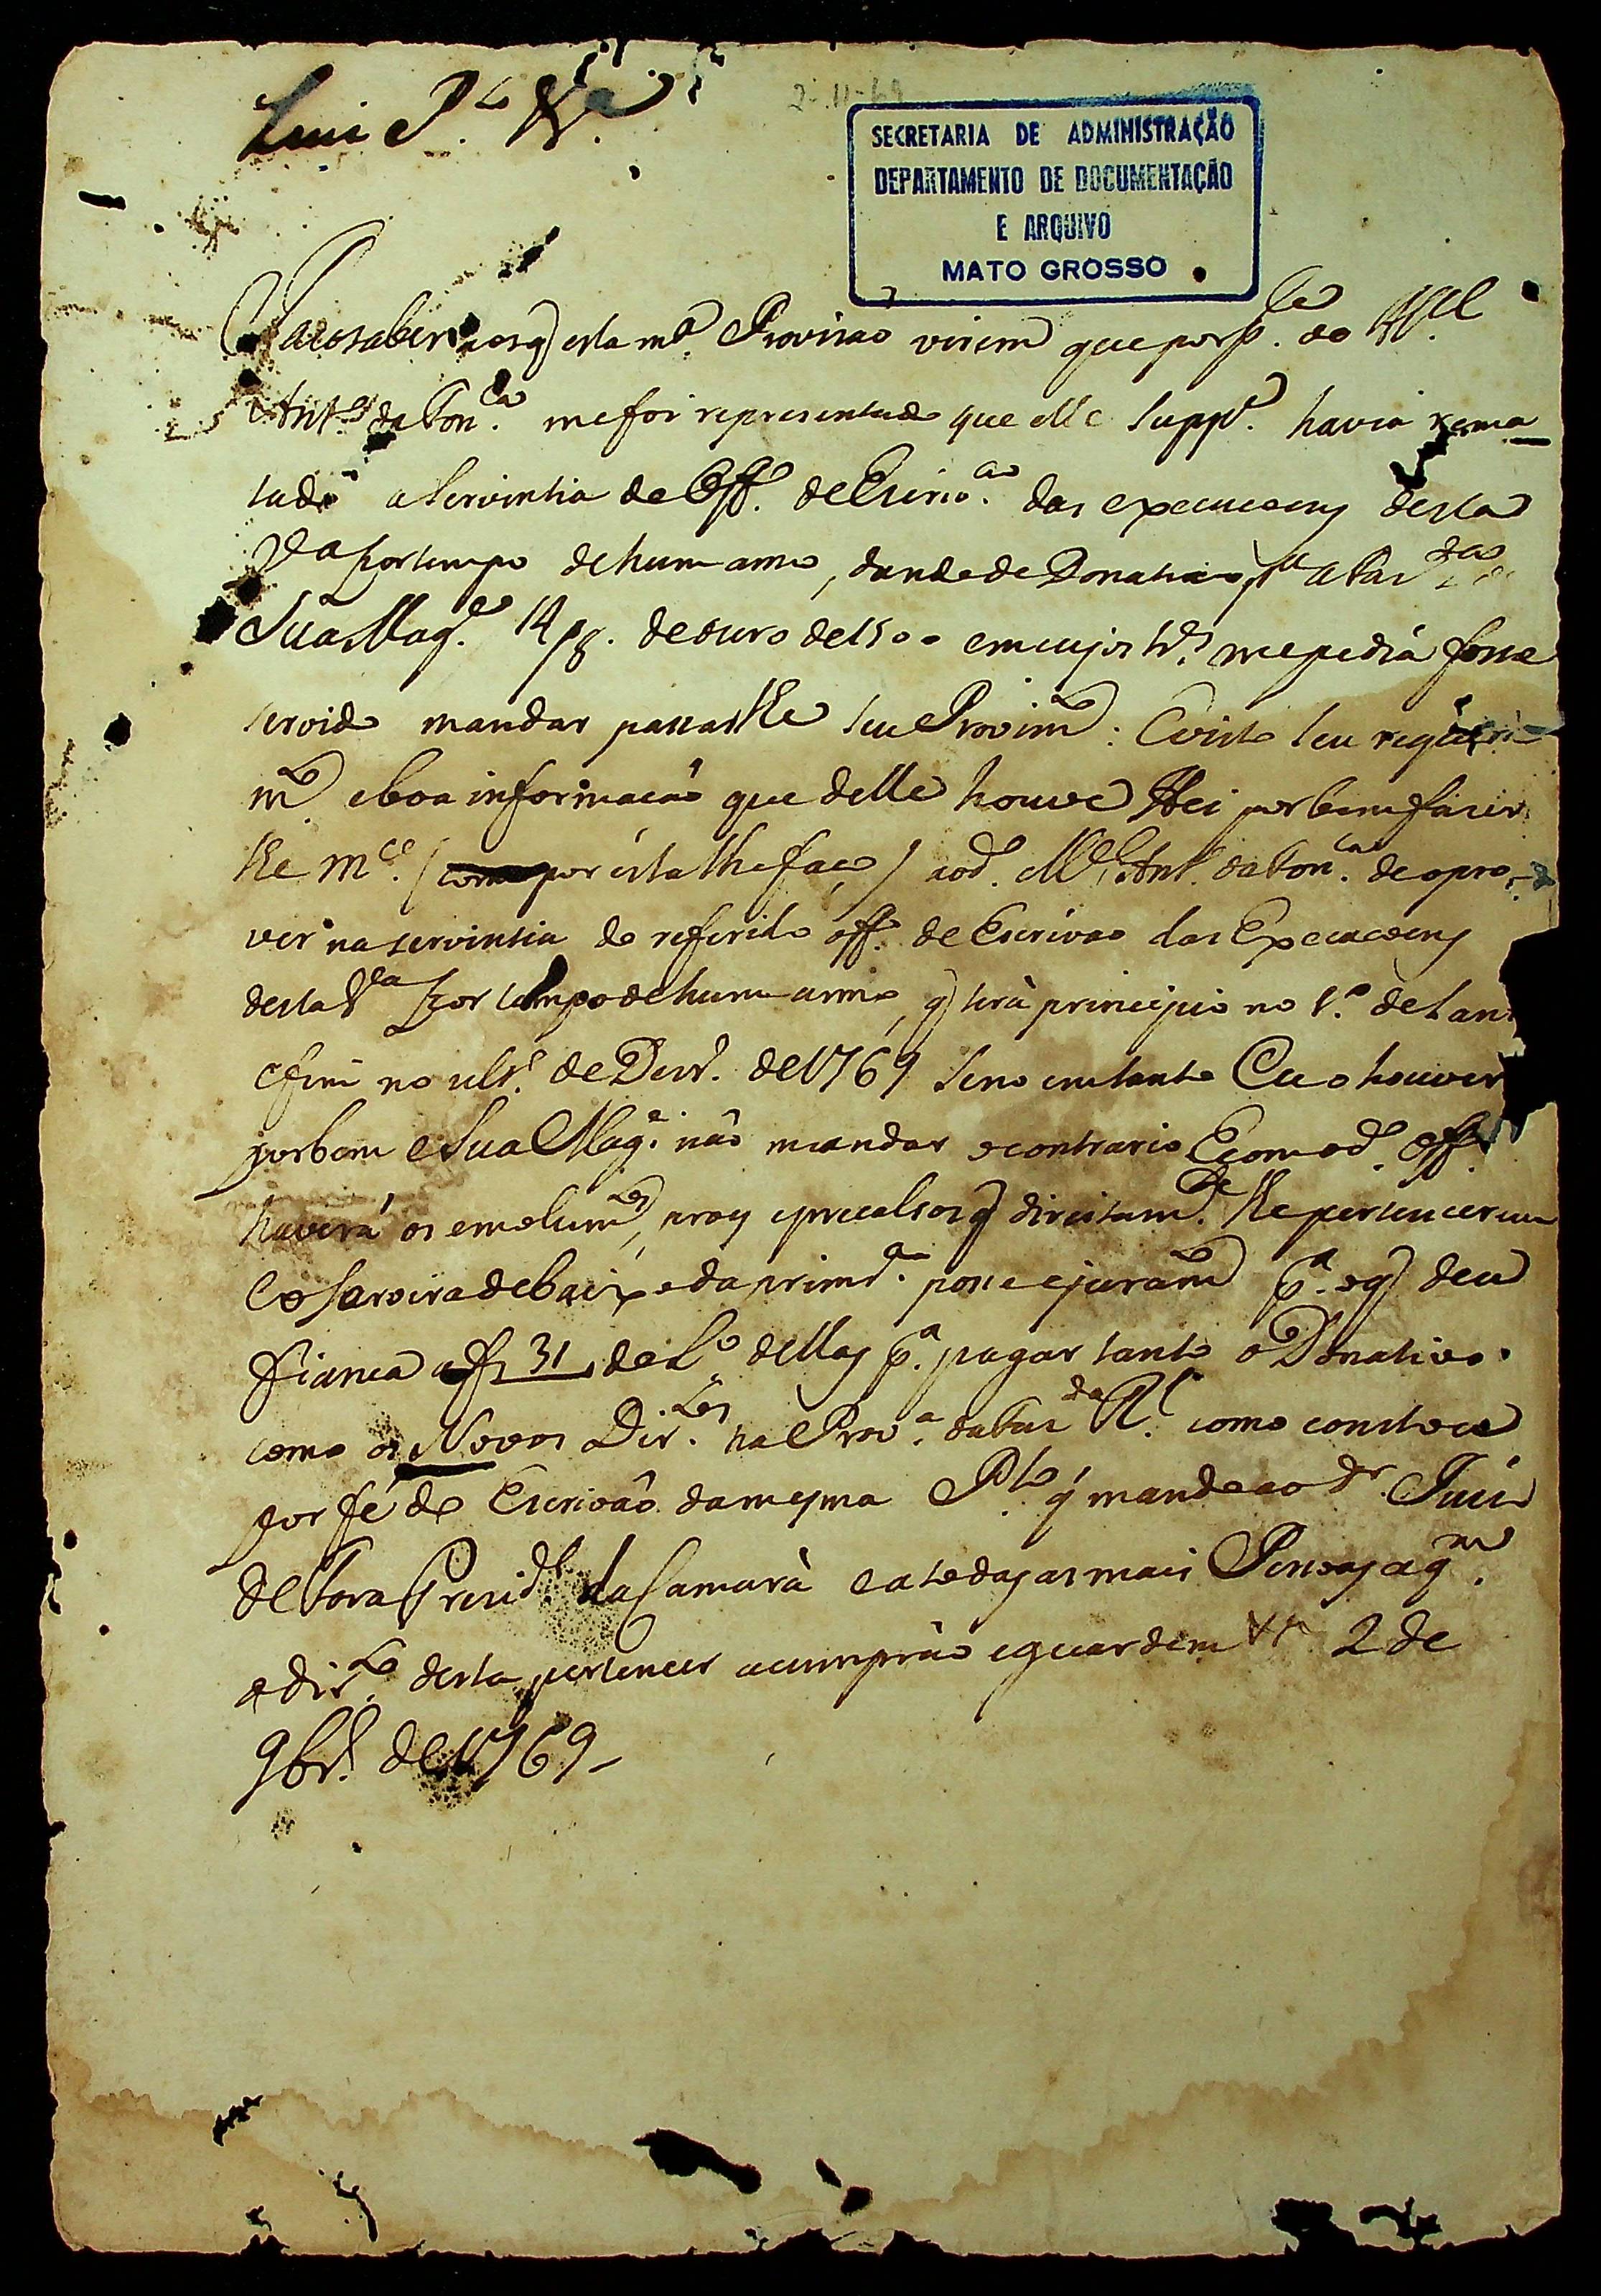 Luis P.to &.a
2-11-69
SECRETARIA DE ADMINISTRAÇÃO
DEPARTAMENTO DE DOCUMENTAÇÃO
E ARQUIVO
MATO GROSSO
Faço saber aos q̃ esta m.ª Provisaõ virem que por p.te de M.el
Ant.º da Fon.ca me foi representado que elle supp.e havia rema
tado a Serventia do Off.º de Escriv.am das execucoens desta
V.a por tempo de hum anno, dando de Donativo p.a a Faz.da de
Sua Mag.e 14/8.as de ouro de 1500 em cujos tr.os me pedia fosse
servido mandar passarlhe seu Provim.to : E visto seu requeri
m.to e boa informacaõ que delle houve Hei por bem fazer
lhe m.ce / por esta lhe faço / ao d.º M.el Ant.º da Fon.ca de o pro
ver na serventia do referido off.º de Escrivaõ das Execucoens
desta V.a por tempo de hum anno, q̃ terà principio no 1.º de Jan
e fim no ult.º de Dez.º de 1769 se no entanto Eu o houver
por bem e Sua Mag.e naõ mandar o contrario E com o d.º off.º
haverá os emolum.tos, proes e precalsos q̃ direitam.te lhe pertencerem
e o servira debaixo da prim.ra posse e juram.to p.a o q̃ deu
fianca a f 31 do L.º dellas p.a pagar tanto o Donativo
como os Novos Dir.tos na Prov.a da Faz.da R.l como constou
por fé do Escrivaõ da mesma P.lo q̃ mando ao D.r Juiz
de Fora Presid.e da Camarà e a todas as mais Pessoas a q.m
o dir.to desta pertencer a cumpraõ e guardem 2 de
9br.º de 1769